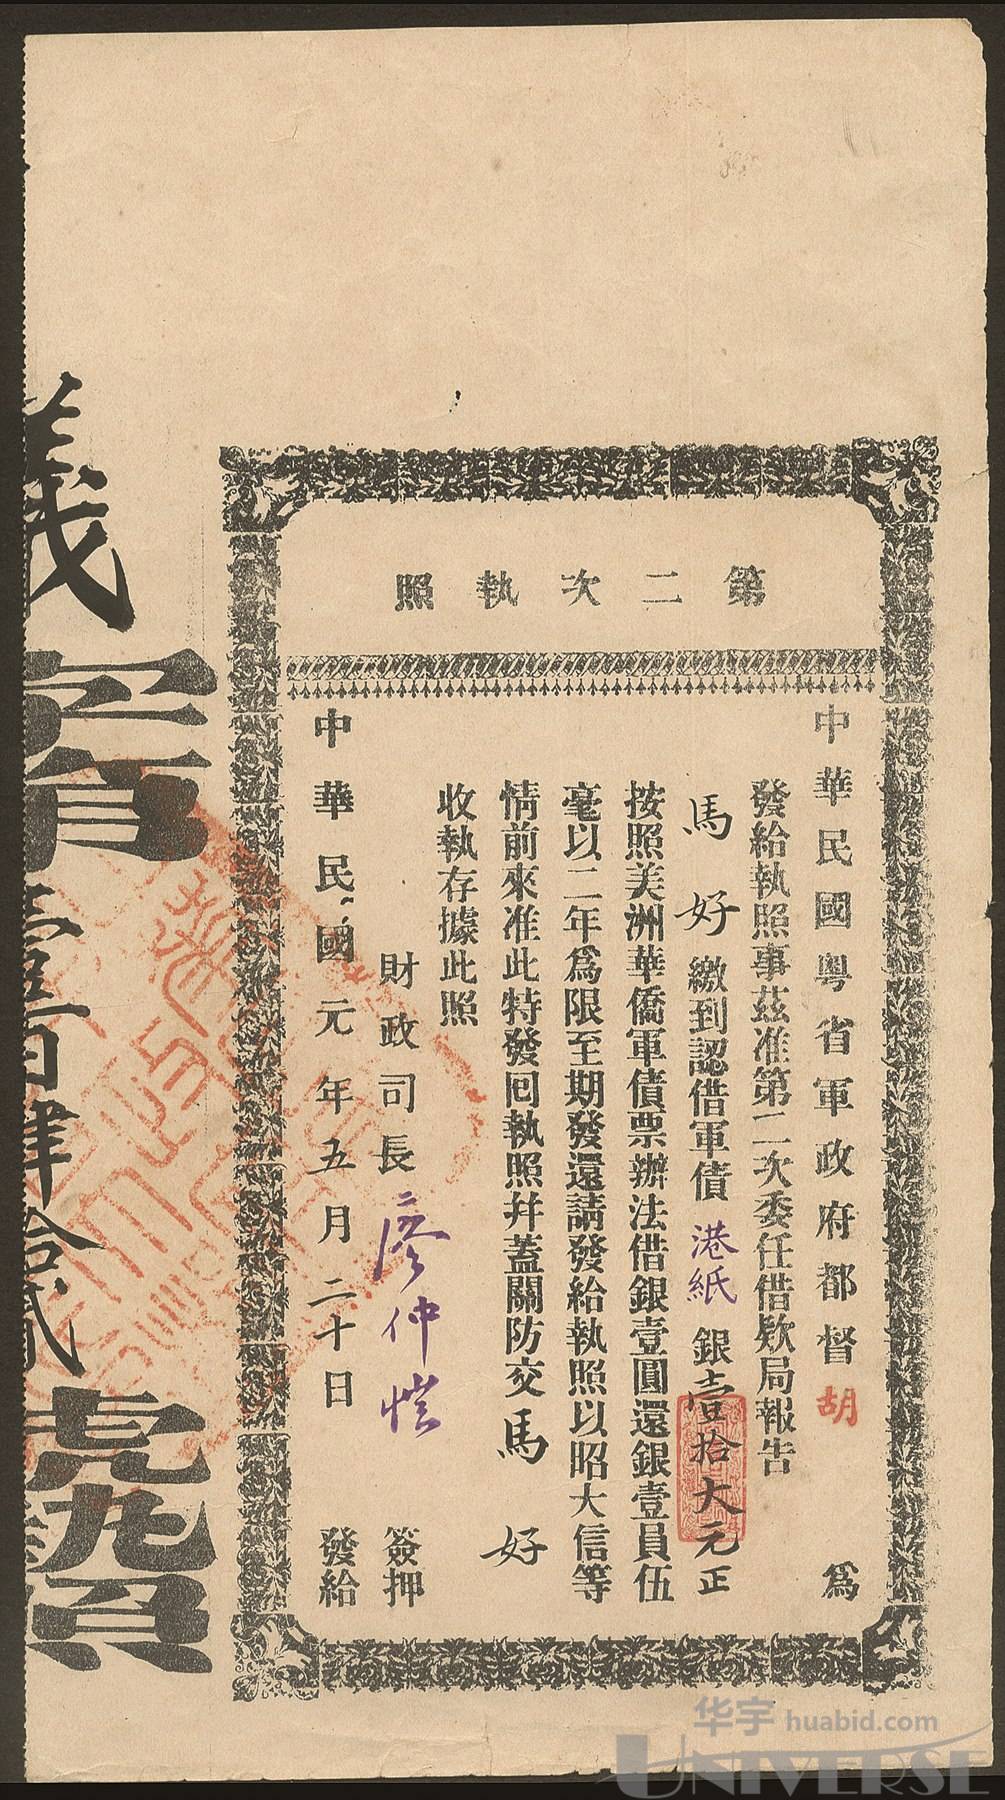 第二次執照
中華民國粵省軍政府都督胡 為
發給執照事茲准第二次委任借欵局報告
馬好繳到認借軍債港紙銀壹拾大元正
按照美洲華僑軍債票辦法借銀壹圓還銀壹員伍
毫以二年為限至期發還請發給執照以昭大信等
情前來准此特發囘執照幷蓋關防交馬好
收執存據此照
財政司長廖仲愷 簽押
中華民國元年五月二十日 發給
義字第壹百肆拾貳號執照
华宇 huabid.com
UNIVERSE